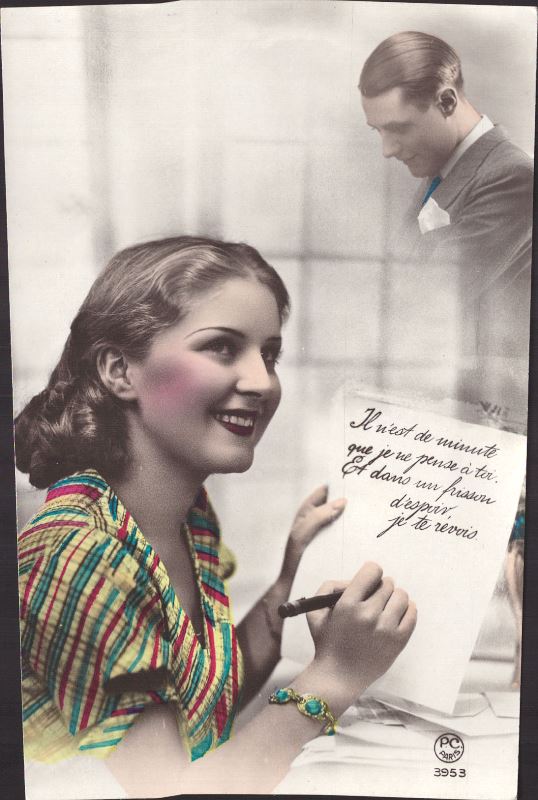 Il n'est de minute
que je ne pense à toi.
Et dans un frisson
d'espoir
je te revois.
P.C.
PARIS
3953